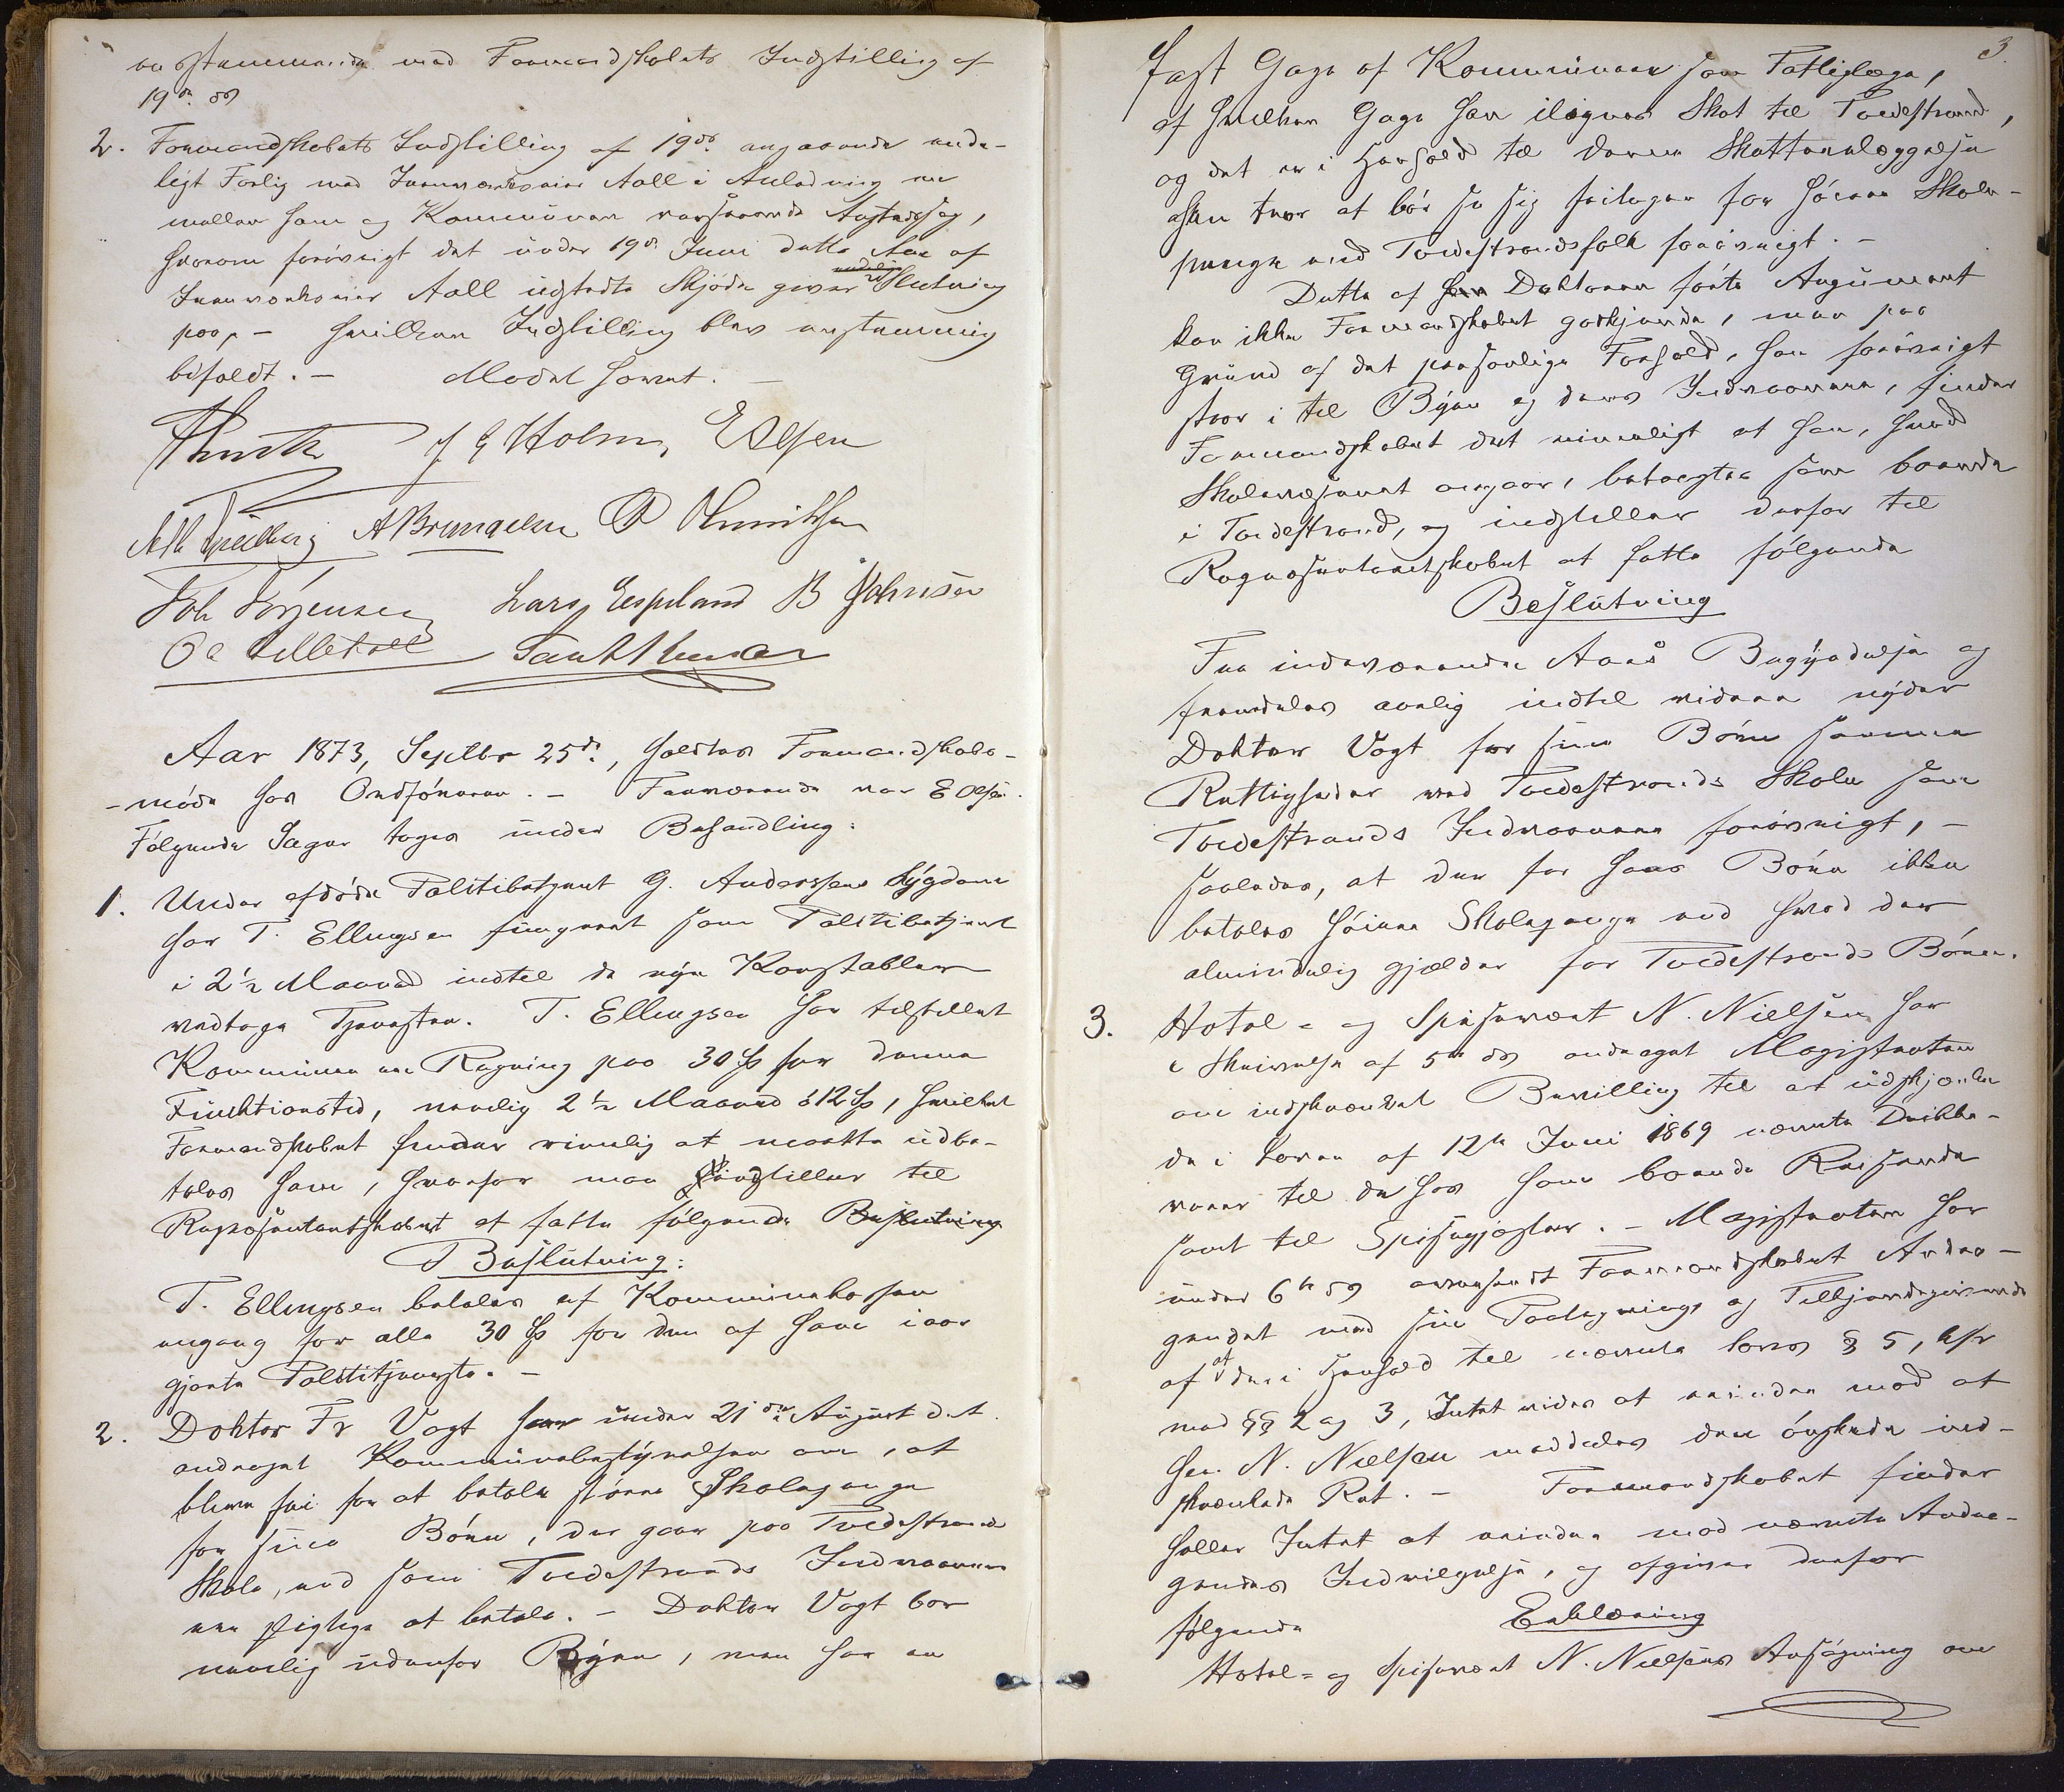 overstemmende med Formandskabets Indstilling af
19de ds
2. Formandskabets Indstilling af 19de angaaende ende-
ligt Forlig med Jernværkseier Aall i Anledning en
mellem ham og Kommunen versserende Aastedssag,
hvorom forøvrigt det under 19de Juni dette Aar af
Jernværkseier Aall udstedte Skjøde giver endelig Slutning
paa, – hvilken Indstilling blev enstemmig
bifaldt. – Mødet hævet. –
J G Holm, E Olsen
A Bremgelsen O Henriksen
Joh Jørgensen Lars Espeland B Johnsen
O A Lilletvet
Aar 1873, Septbr 25de, holdtes Formandskabs-
-møde hos Ordføreren. – Fraværende var E Olsen.
Følgende Sager toges under Behandling:
1. Under afdøde Politibetjent G. Anderssens Sygdom
har T. Ellingsen fungeret som Politibetjent
i 2½ Maaned indtil de nye Konstabler
vedtoge Tjenesten. T. Ellingsen har tilstillet
Kommunen en Regning paa 30 Sp for denne
Funktionstid, nemlig 2½ Maaned á 12 Sp, hvilket
Formandskabet finder rimelig at maatte udbe-
tales ham, hvorfor man indstiller til
Repræsentantskabet at fatte følgende Beslutning
Beslutning:
T. Ellingsen betales af Kommunekassen
engang for alle 30 Sp for den af ham i aar
gjorte Polititjeneste. –
2. Doktor Fr Vogt har under 21de August d. A.
andraget Kommunebestyrelsen om, at
blive fri for at betale større Skolepenge
for sine Børn, der gaar paa Tvedestrands
Skole, end som Tvedestrands Indvaanere
ere pligtige at betale. – Doktor Vogt bor
nemlig udenfor Byen, men har en
3.
fast Gage af Kommunen som Fattiglæge,
af hvilken Gage han ilignes Skat til Tvedestrand,
og det er i Henhold til denne Skatteerlæggelse
han tror at bør sig fritagen for høiere Skole-
penge end Tvedestrandsfolk forøvrigt. –
Dette af han Doktoren førte Argument
kan ikke Formandskabet godkjende, men paa
Grund af det personlige Forhold, han forøvrigt
staar i til Byen og dens Indvaanere, finder
Formandskabet det rimeligt at han, hvad
Skolevæsenet angaar, betragtes som boende
i Tvedestrand, og indstiller derfor til
Repræsentantskabet at fatte følgende
Beslutning
Fra indeværende Aars Begyndelse og
fremdeles aarlig indtil videre nyder
Doktor Vogt for sine Børn samme
Rettigheder ved Tvedestrands Skole som
Tvedestrands Indvaanere forøvrigt, –
saaledes, at der for hans Børn ikke
betales høiere Skolepenge end hvad der
almindelig gjælder for Tvedestrands Børn.
3. Hotel- og Spisevært N. Nielsen har
i Skrivelse af 5te ds andraget Magistraten
om indskrænket Bevilling til at udskjænke
de i Loven af 12te Juni 1869 nævnte Drikke-
varer til de hos ham boende Reisende
samt til Spisegjæster. – Magistraten har
under 6te ds oversendt Formandskabet Andra-
gendet med sin Paategning og Tilkjendegivende
af at den i Henhold til nævnte Lovs § 5, cfr
med §§ 2 og 3, Intet vides at erindre mod at
Hr. N. Nielsen meddeles den ønskede ind-
skrænkede Ret. – Formandskabet finder
heller Intet at erindre mod nævnte Andra-
gendes Indvilgelse, og afgiver derfor
følgende Erklæring
Hotel- og Spisevært N. Nielsens Ansøgning om